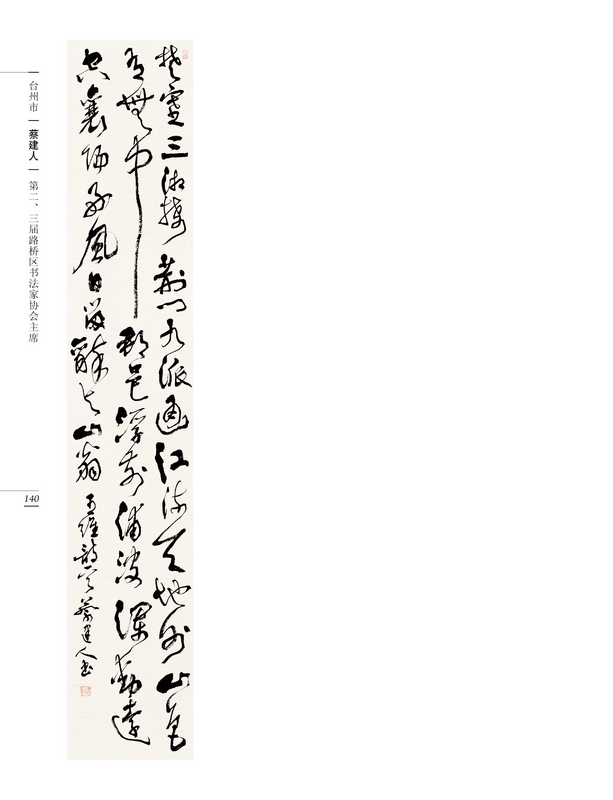 楚塞三湘接荆門九派通江流天地外山色
有無中郡邑浮前浦波瀾動遠
空襄陽好風日留醉与山翁
王維詩蔡建人书
台州市 — 蔡建人 — 第二、三届路桥区书法家协会主席
140